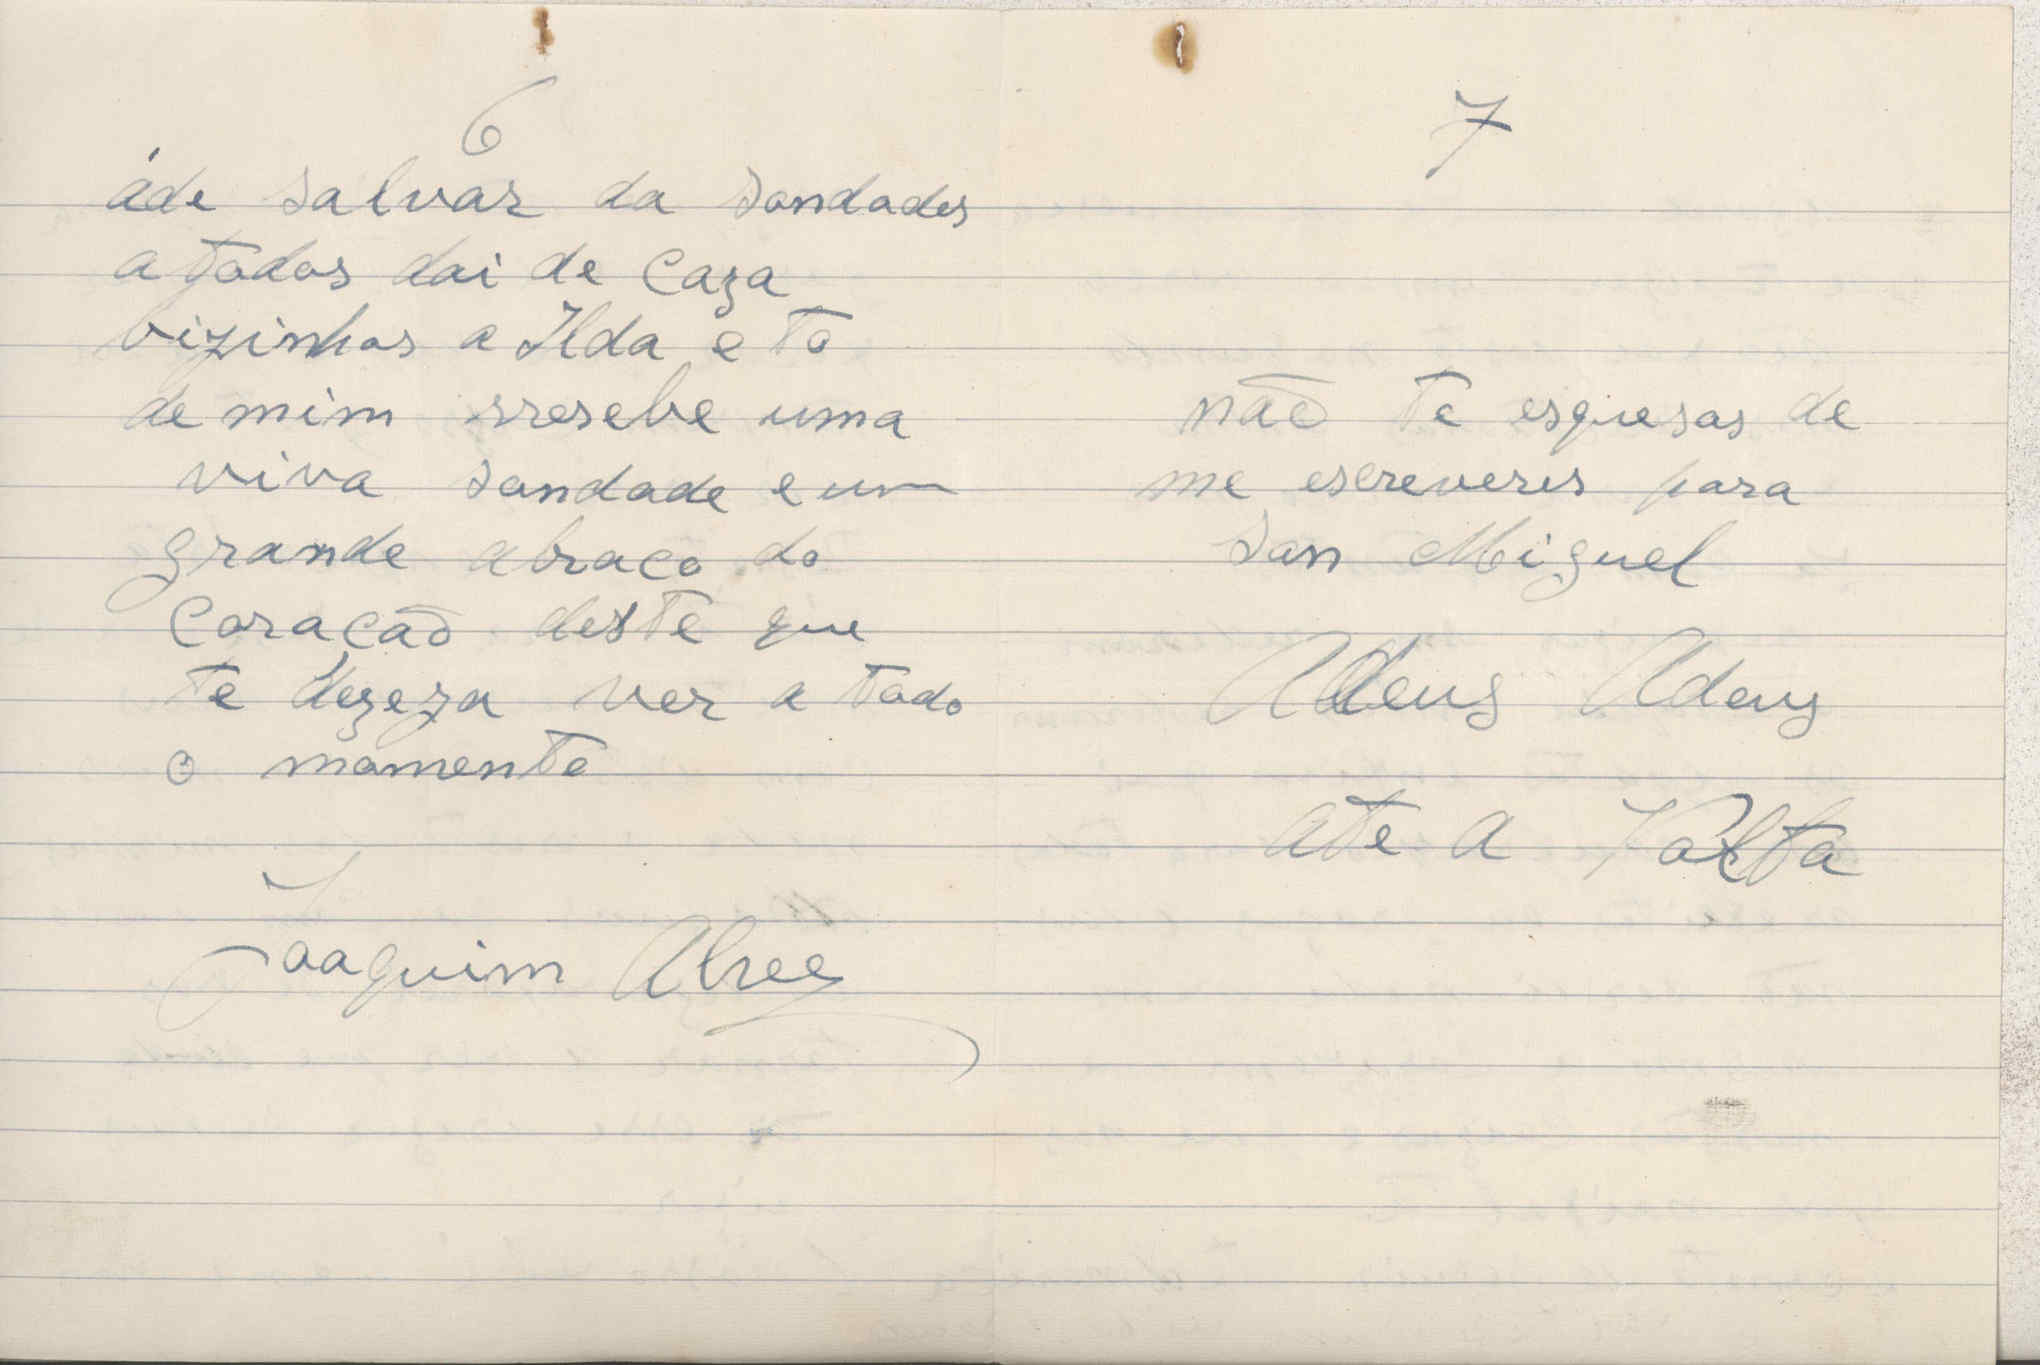 6
áde salvar da sandades
a todos dai de caza
bizinhos a Ilda e to
de mim rresebe uma
viva sandade e um
grande abraco do
coracão deste que
te dezeza ver a todo
o momento
Joaquim Alves
7
não te esquesas de
me escreveres para
San Miguel
Adeus Adeus
ate a Volta